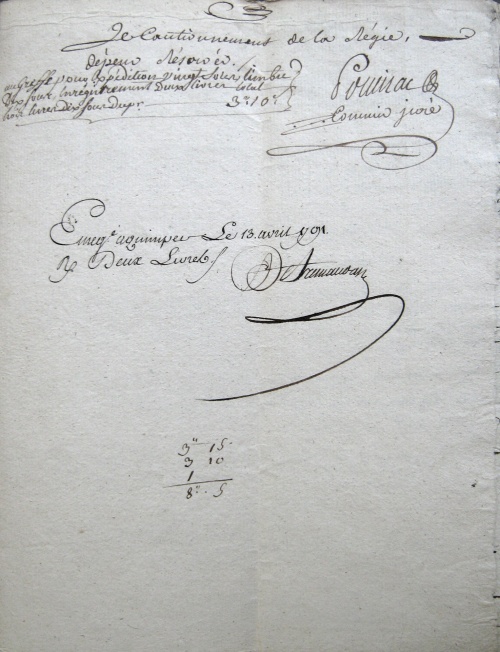 Le Cautionnement de la Régie,
dépens Réservés.
au Greffe pour Expédition vingt sous timbre
Dix sous, Enregistrement Deux livres total
trois livres dix sous
3# 10s
Commis juré
Enreg. a quimper Le 13. avril 1791.
Deux Livres
3# 15.
3 10
1
8# . 5